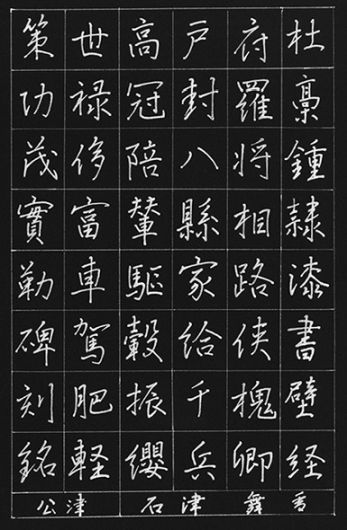 杜稾鍾隷漆書壁経
府羅将相路侠槐卿
戸封八縣家給千兵
高冠陪輦驅轂振纓
世禄侈富車駕肥軽
策功茂實勒碑刻銘
公津 石津 舞